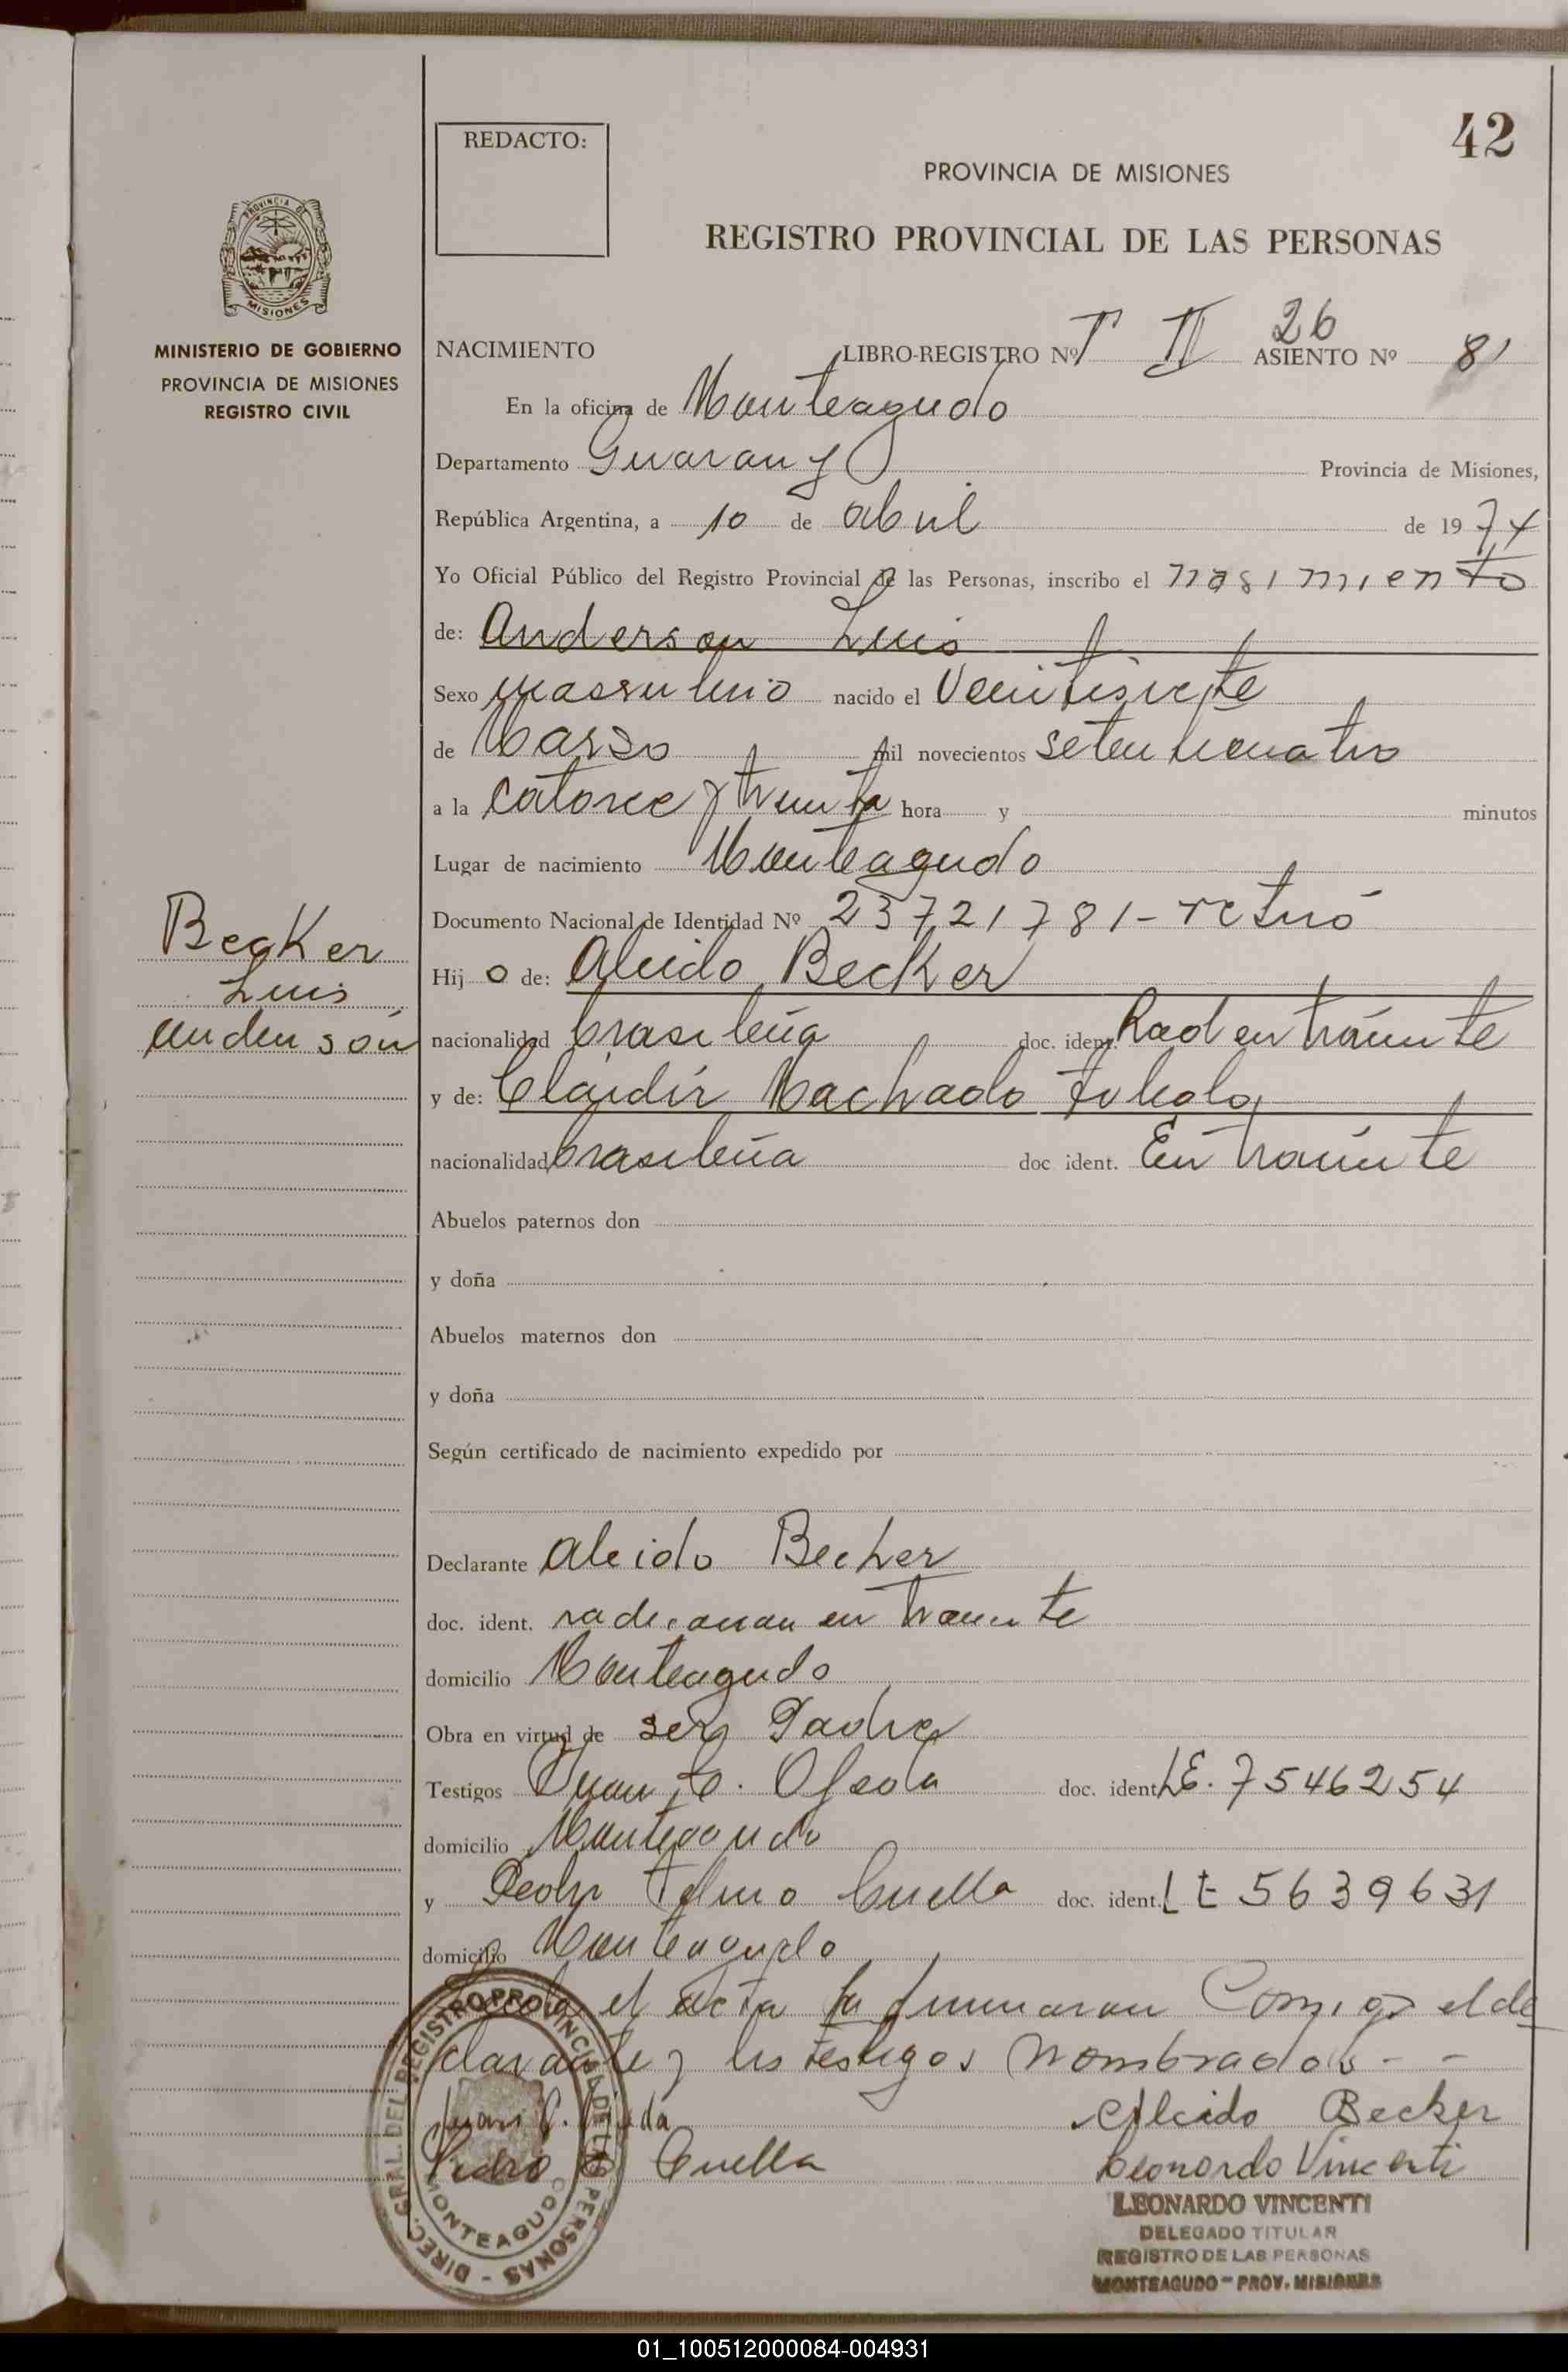 42
REDACTO:
PROVINCIA DE MISIONES
REGISTRO PROVINCIAL DE LAS PERSONAS
PROVINCIA DE
MISIONES
MINISTERIO DE GOBIERNO
PROVINCIA DE MISIONES
REGISTRO CIVIL
26
NACIMIENTO LIBRO-REGISTRO Nº T II ASIENTO Nº 81
En la oficina de Monteagudo
Departamento Guarany Provincia de Misiones,
República Argentina, a 10 de abril de 1974
Yo Oficial Público del Registro Provincial de las Personas, inscribo el nasimiento
de: Anderson Luis
Sexo masculino nacido el Veintisiete
de Marzo mil novecientos setenticuatro
a la catorce y treinta hora y minutos
Lugar de nacimiento Monteagudo
Documento Nacional de Identidad Nº 23721781- retiró
Becker
Luis
Anderson
Hijo de: Alcido Becker
nacionalidad brasileña doc. ident. Rad en trámite
y de: Claidir Machado
nacionalidad brasileña doc ident. En trámite
Abuelos paternos don
y doña
Abuelos maternos don
y doña
Según certificado de nacimiento expedido por
Declarante Alcido Becker
doc. ident. en tramite
domicilio Monteagudo
Obra en virtud de ser Padre
Testigos Juan C. doc. ident. LE. 7546254
domicilio Monteagudo
y Pedro Telmo Cuella doc. ident. LE 5639631
domicilio Monteagudo
el acta la firmaran Comigo el de
clarante y los testigos nombrados - -
Juan C. Alcido Becker
Pedro Cuella Leonardo Vincenti
DIREC. GRAL. DEL REGISTRO PROVINCIAL DE LAS PERSONAS -
MONTEAGUDO
LEONARDO VINCENTI
DELEGADO TITULAR
REGISTRO DE LAS PERSONAS
MONTEAGUDO - PROV. MISIONES
01_100512000084-004931